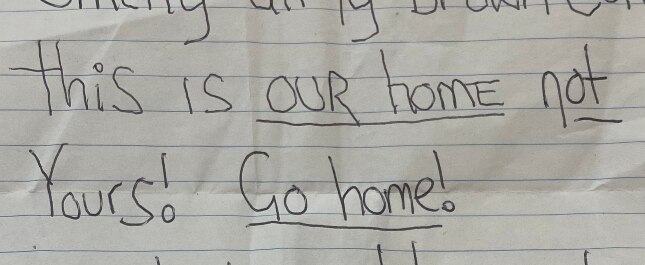 This is OUR home not
Yours! Go home!